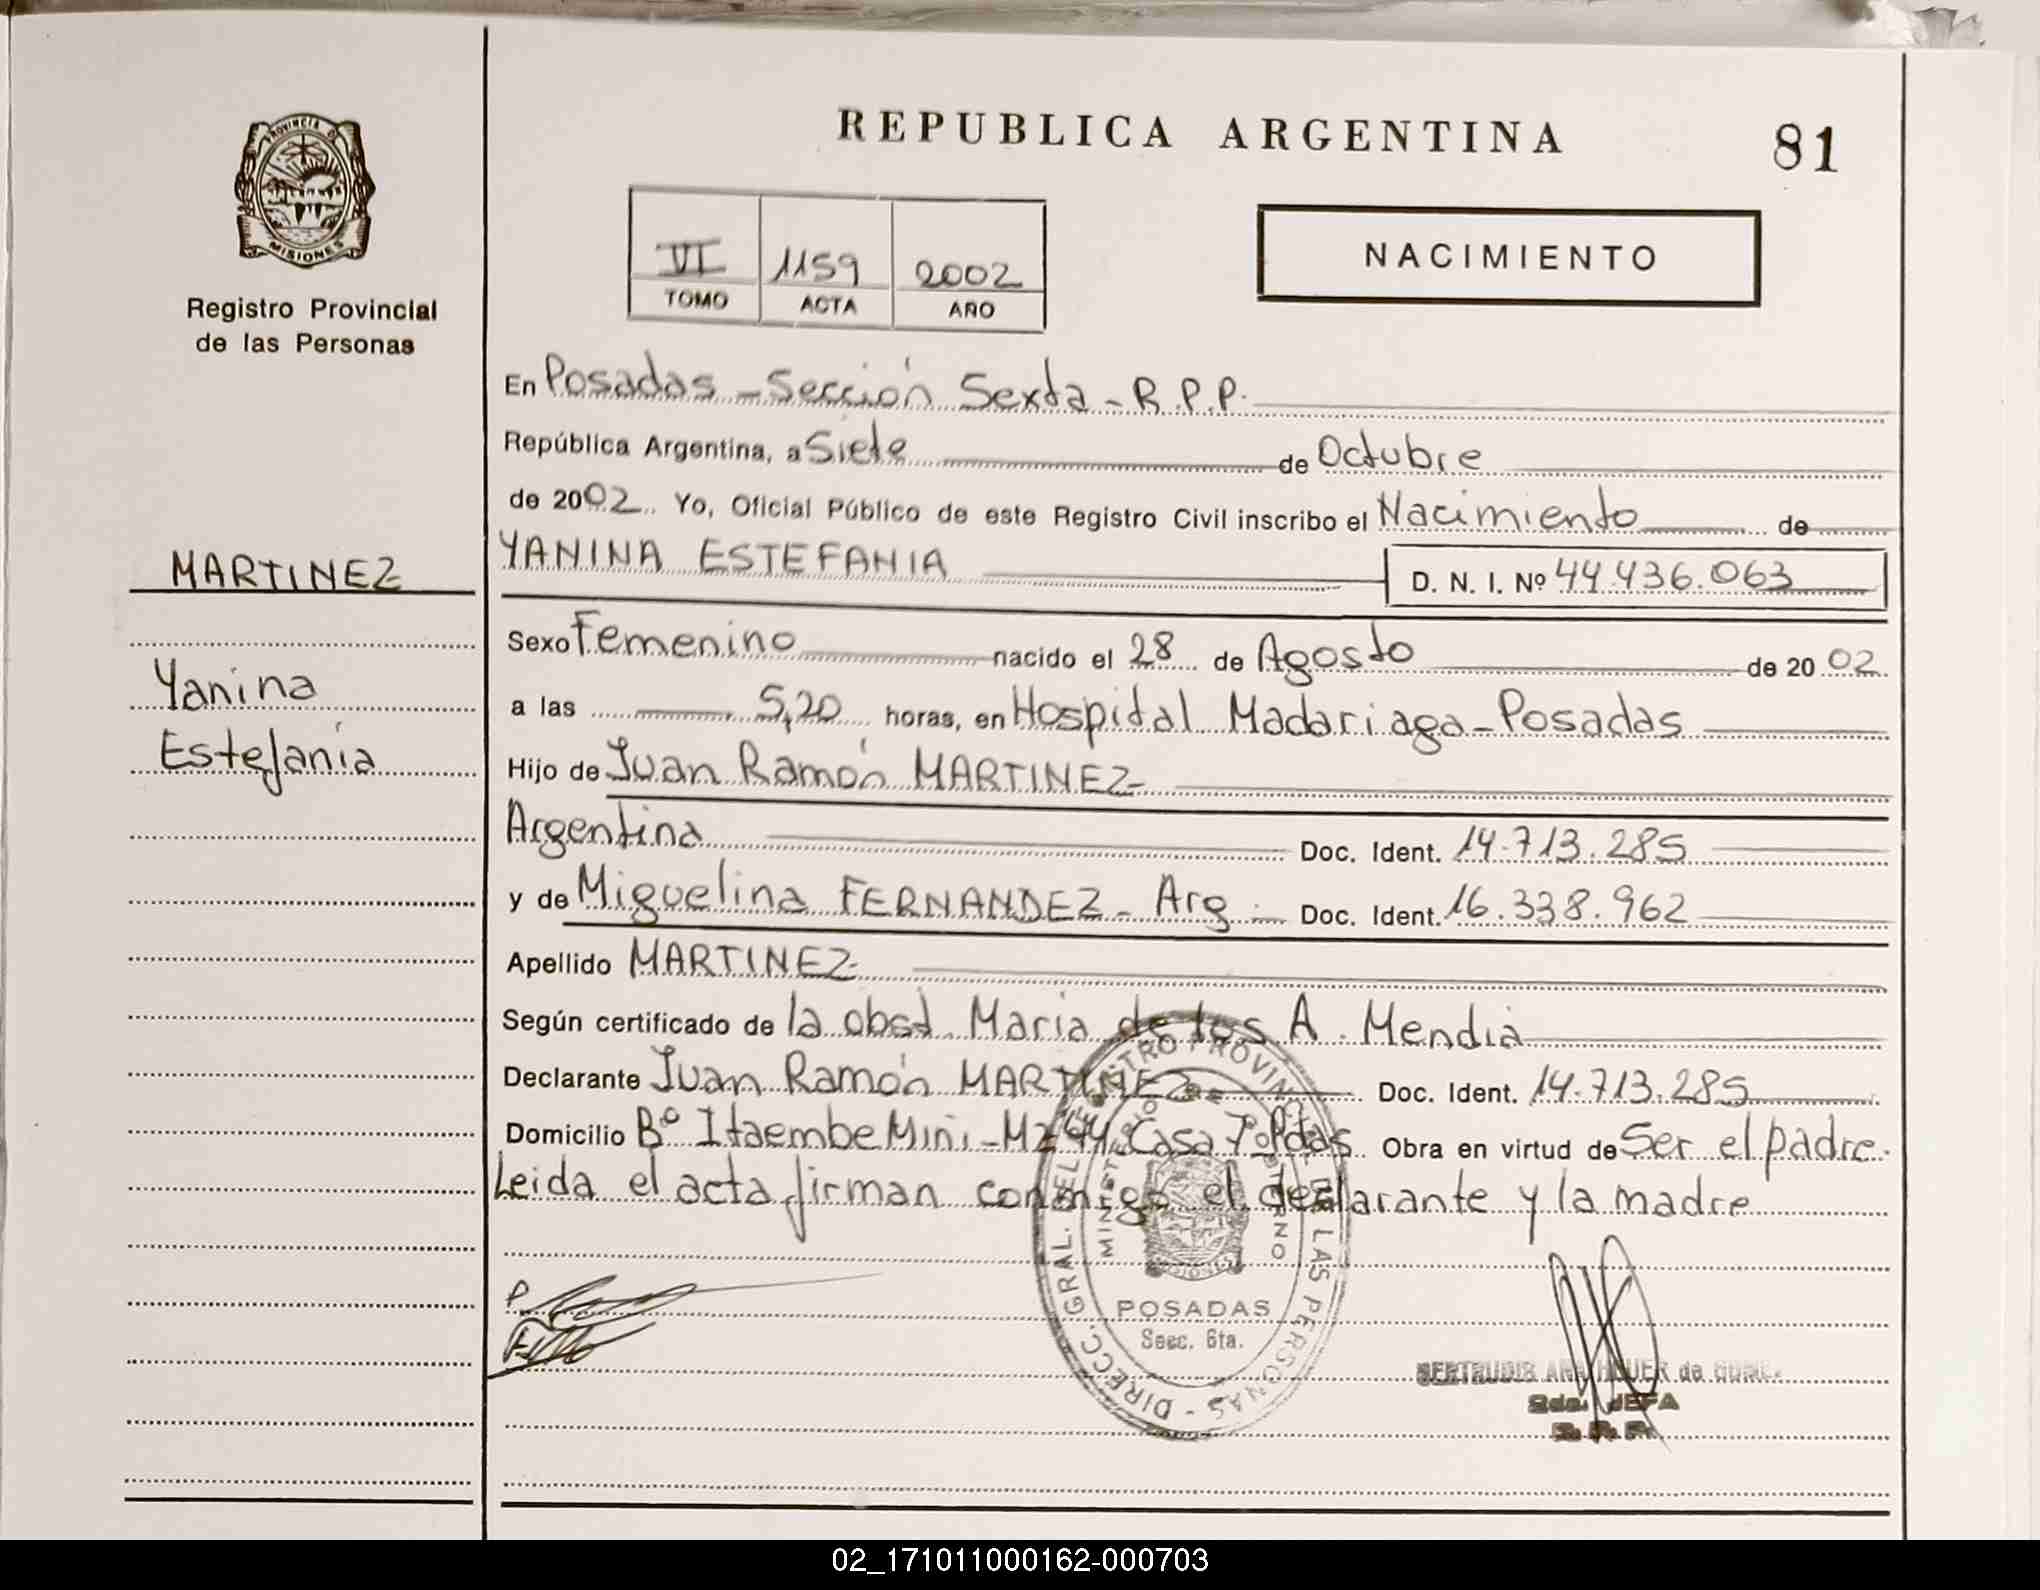 REPUBLICA ARGENTINA
81
PROVINCIA D
MISIONES
Registro Provincial
de las Personas
VI 1159 2002
TOMO ACTA AÑO
NACIMIENTO
En Posadas - Sección Sexta - R.P.P.
República Argentina, a Siete de Octubre
de 2002. Yo, Oficial Público de este Registro Civil inscribo el Nacimiento de
MARTINEZ
YANINA ESTEFANIA D. N. I. Nº 44.436.063
Sexo Femenino nacido el 28 de Agosto de 20 02
Yanina
a las 5,20 horas, en Hospital Madariaga - Posadas
Estefanía
Hijo de Juan Ramón MARTINEZ
Argentina Doc. Ident. 14.713.285
y de Miguelina FERNANDEZ - Arg. Doc. Ident. 16.338.962
Apellido MARTINEZ
Según certificado de la obst. Maria de los A. Mendia
Declarante Juan Ramón MARTINEZ Doc. Ident. 14.713.285
Domicilio Bº Itaembe Miní - Mz 44 Casa 7 Pdas. Obra en virtud de Ser el padre.
Leida el acta firman conmigo el declarante y la madre
DIRECC. GRAL. DEL REGISTRO PROVINCIAL DE LAS PERSONAS -
MINISTERIO DE GOBIERNO
MISIONES
POSADAS
Secc. 6ta.
GERTRUDIS ANA HOUER de GOMEZ
2da. JEFA
R. P. P.
02_171011000162-000703